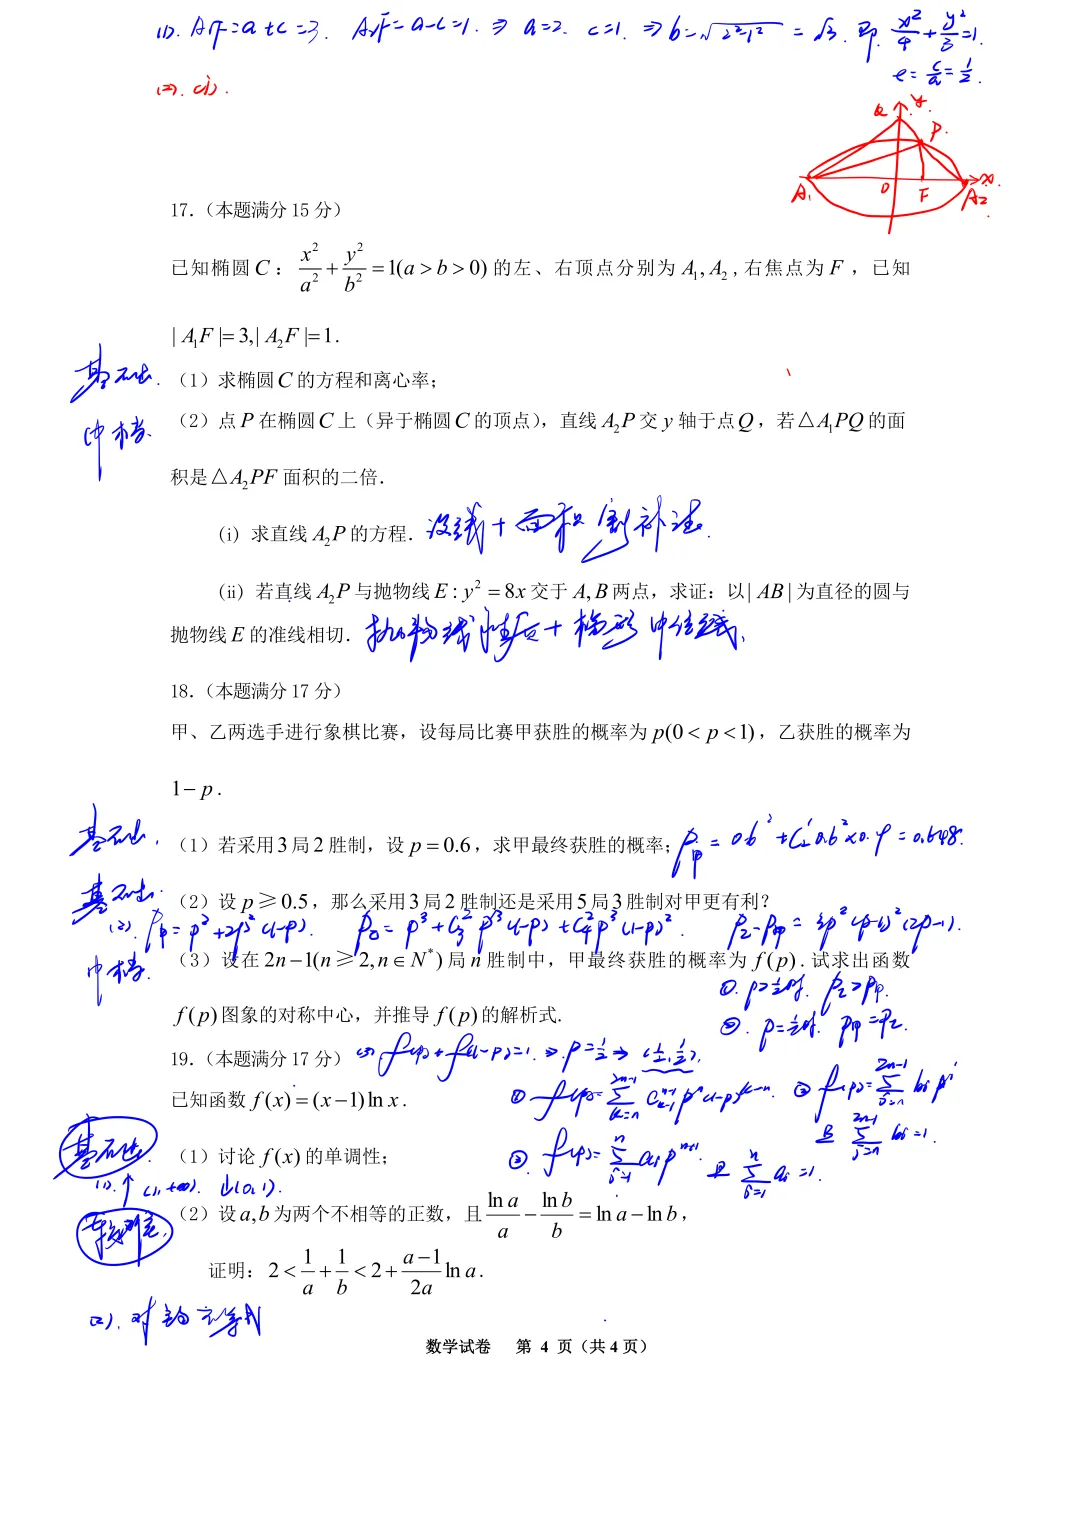 (1). A₁F=a+c=3. A₂F=a-c=1. ⇒ a=2. c=1. ⇒ b=√2²-1² = √3. 即 x²/4+y²/3=1.
e=c/a=1/2.
(2). (i).
Q y P. A₁ O F A₂ x.
17.（本题满分 15 分）
已知椭圆 C： x²/a² + y²/b² =1(a>b>0) 的左、右顶点分别为 A₁, A₂ ,右焦点为 F ，已知
|A₁F|=3,|A₂F|=1.
基础. （1）求椭圆 C 的方程和离心率;
中档. （2）点 P 在椭圆 C 上（异于椭圆 C 的顶点），直线 A₂P 交 y 轴于点 Q，若△A₁PQ 的面
积是△A₂PF 面积的二倍.
(i) 求直线 A₂P 的方程. 设线+面积割补法.
(ii) 若直线 A₂P 与抛物线 E: y²=8x 交于 A,B 两点，求证：以|AB|为直径的圆与
抛物线 E 的准线相切. 抛物线性质+梯形中位线.
18.（本题满分 17 分）
甲、乙两选手进行象棋比赛，设每局比赛甲获胜的概率为 p(0<p<1)，乙获胜的概率为
1-p.
基础. （1）若采用 3 局 2 胜制，设 p=0.6，求甲最终获胜的概率; P甲=0.6²+C₂¹0.6²×0.4=0.648.
基础. （2）设 p≥0.5，那么采用 3 局 2 胜制还是采用 5 局 3 胜制对甲更有利？
(2). P甲=p²+2p²(1-p). P乙=p³+C₃²p³(1-p)+C₄²p³(1-p)². P乙-P甲=3p²(p-1)²(2p-1).
中档. （3）设在 2n-1(n≥2,n∈N*) 局 n 胜制中，甲最终获胜的概率为 f(p).试求出函数
①. p>1/2时. P乙>P甲.
f(p)图象的对称中心，并推导 f(p)的解析式.
②. p=1/2时. P甲=P乙.
19.（本题满分 17 分） (3) f(p)+f(1-p)=1. ⇒ p=1/2 ⇒ (1/2,1/2).
已知函数 f(x)=(x-1)ln x.
基础. （1）讨论 f(x)的单调性;
(1). ↑(1,+∞). ↓(0,1).
较难 （2）设 a,b 为两个不相等的正数，且 ln a/a - ln b/b = ln a - ln b，
证明：2<1/a+1/b<2+(a-1)/2a ln a.
(2). 对
数学试卷 第 4 页（共 4 页）